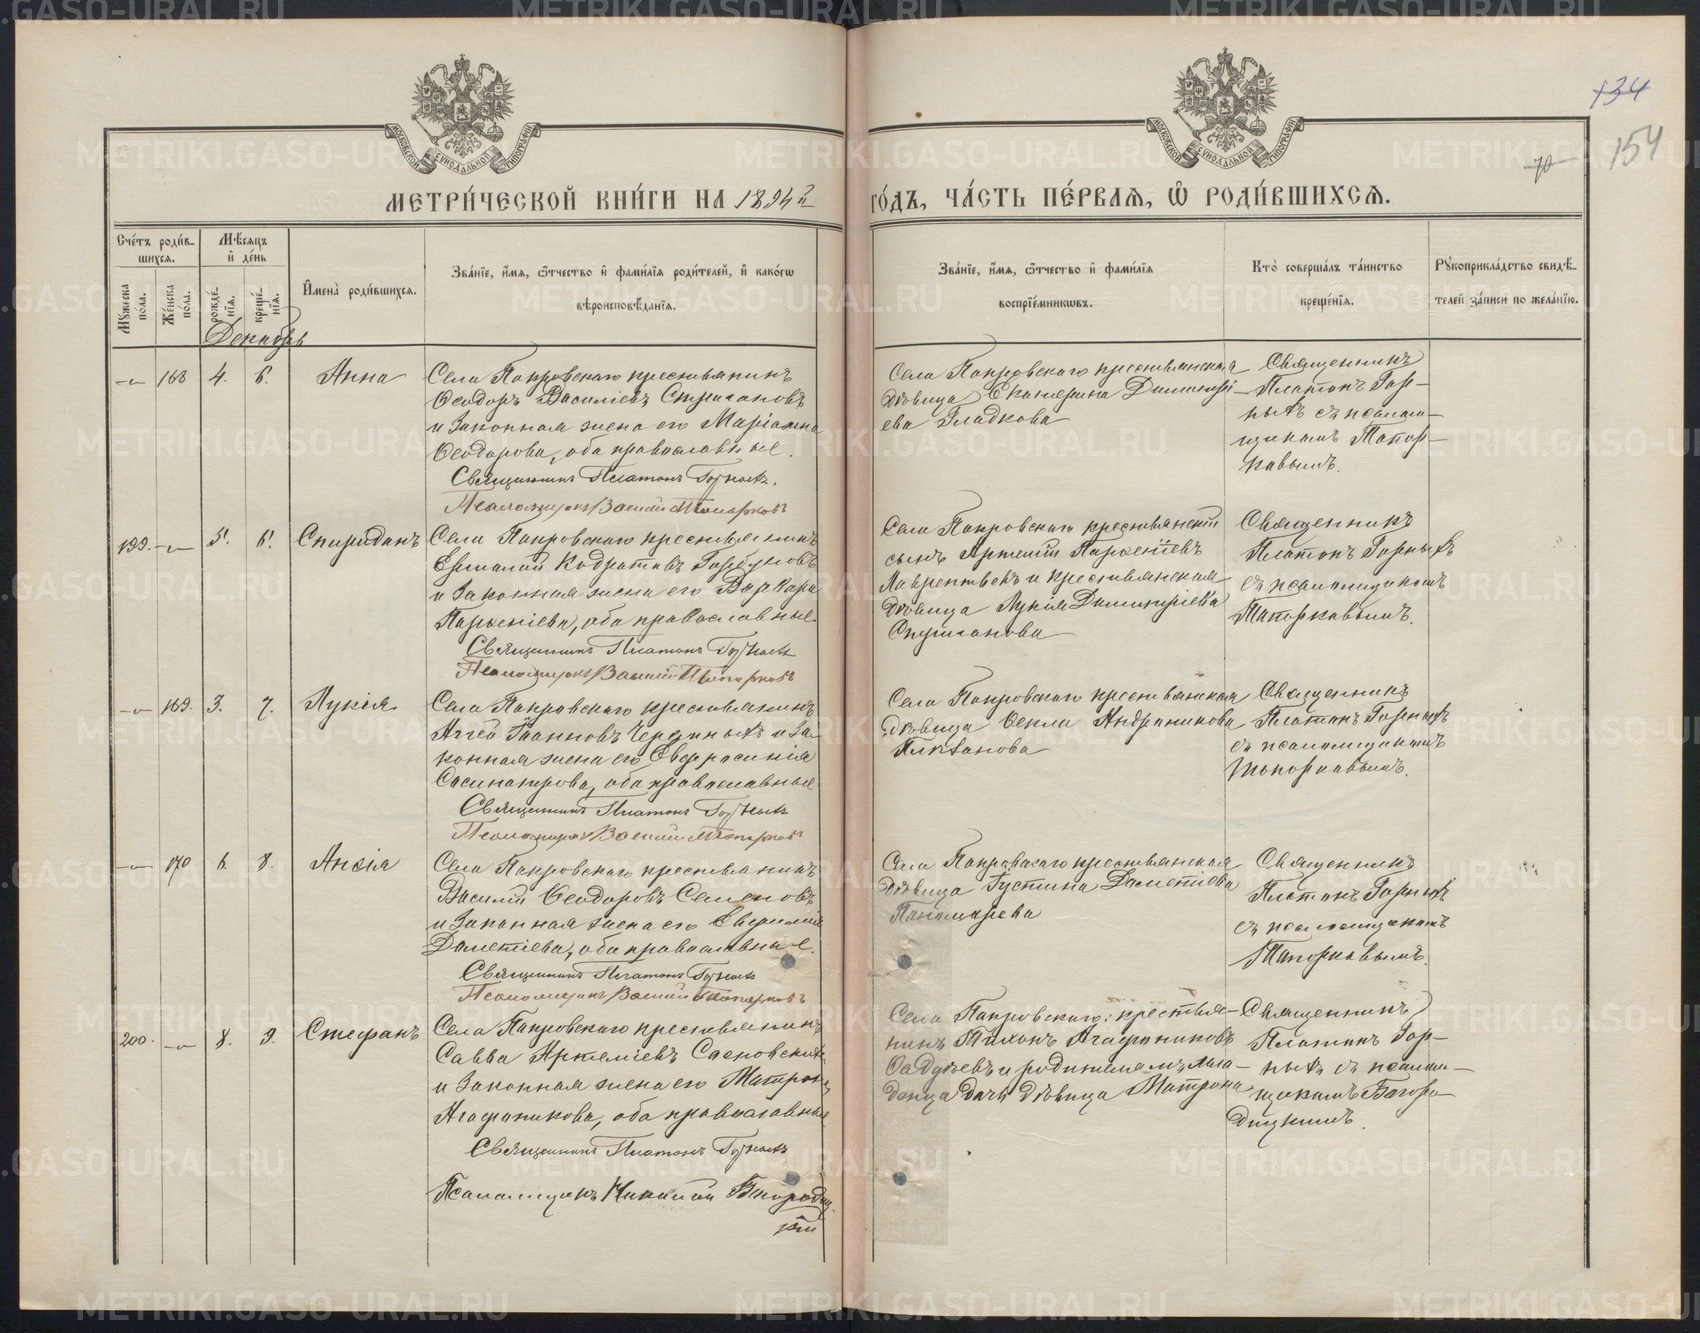 134
154
70
МЕТРИ́ЧЕСКОЙ КНИ́ГИ НА 1894 г
ГО́ДЪ, ЧА́СТЬ ПЕ́РВАѦ, Ѡ҆ РОДИ́ВШИХСѦ.
Сче́тъ роди́в-
шихсѧ.
Мꙋ́жеска по́ла.
Же́нска по́ла.
Мѣ́сѧцъ
и҆ де́нь
рожде́-
нїѧ.
креще́-
нїѧ.
И҆мена̀ роди́вшихсѧ.
Зва́нїе, и҆́мѧ, ѻ҆́тчество и҆ фами́лїѧ роди́телей, и҆ како́гѡ
вѣроисповѣ́данїѧ.
Зва́нїе, и҆́мѧ, ѻ҆́тчество и҆ фами́лїѧ
воспрїе́мникѡвъ.
Кто̀ соверша́лъ та́инство
креще́нїѧ.
Рꙋкоприкла́дство свидѣ́-
телей за́писи по жела́нїю.
Декабрь
168 4. 6. Анна
Села Покровскаго крестьянинъ
Ѳеодоръ Васильевъ Стригановъ
и законная жена его Маріамна
Ѳеодорова, оба православные.
Священникъ Платонъ Горныхъ.
Псаломщикъ Василій Топорковъ
Села Покровскаго крестьянская
дѣвица Екатерина Димитрі-
ева Гладкова
Священникъ
Платонъ Гор-
ныхъ съ псалом-
щикомъ Топор-
ковымъ.
199. 5. 6. Спиридонъ
Села Покровскаго крестьянинъ
Ермолай Кодратовъ Горбуновъ
и законная жена его Варвара
Парѳеніева, оба православные.
Священникъ Платонъ Горныхъ
Псаломщикъ Василій Топорковъ
Села Покровскаго крестьянскій
сынъ Артемій Парѳеніевъ
Лаврентьевъ и крестьянская
дѣвица Лукія Димитріева
Стриганова
Священникъ
Платонъ Горныхъ
съ псаломщикомъ
Топорковымъ.
169. 3. 7. Лукія
Села Покровскаго крестьянинъ
Аггей Іоанновъ Чередныхъ и за-
конная жена его Евфросинія
Сосипатрова, оба православные
Священникъ Платонъ Горныхъ
Псаломщикъ Василій Топорковъ
Села Покровскаго крестьянская
дѣвица Ѳекла Андроникова
Плеханова
Священникъ
Платонъ Горныхъ
съ псаломщикомъ
Топорковымъ.
170 6. 8. Анѳія
Села Покровскаго крестьянинъ
Василій Ѳеодоровъ Семеновъ
и законная жена его Евфимія
Дометіева, оба православные.
Священникъ Платонъ Горныхъ
Псаломщикъ Василій Топорковъ
Села Покровскаго крестьянская
дѣвица Іустина Дометіева
Пономарева
Священникъ
Платонъ Горныхъ
съ псаломщикомъ
Топорковымъ.
200. 8. 9. Стефанъ
Села Покровскаго крестьянинъ
Савва Артеміевъ Сосновскихъ
и законная жена его Матрона
Агафоникова, оба православные
Священникъ Платонъ Горныхъ
Псаломщикъ Николай Богородиц-
кій
Села Покровскаго: крестья-
нинъ Тихонъ Агафониковъ
и родителемъ мла-
денца дочь дѣвица Матрона
Священникъ
Платонъ Гор-
ныхъ съ псалом-
щикомъ Богоро-
дицкимъ.
METRIKI.GASO-URAL.RU